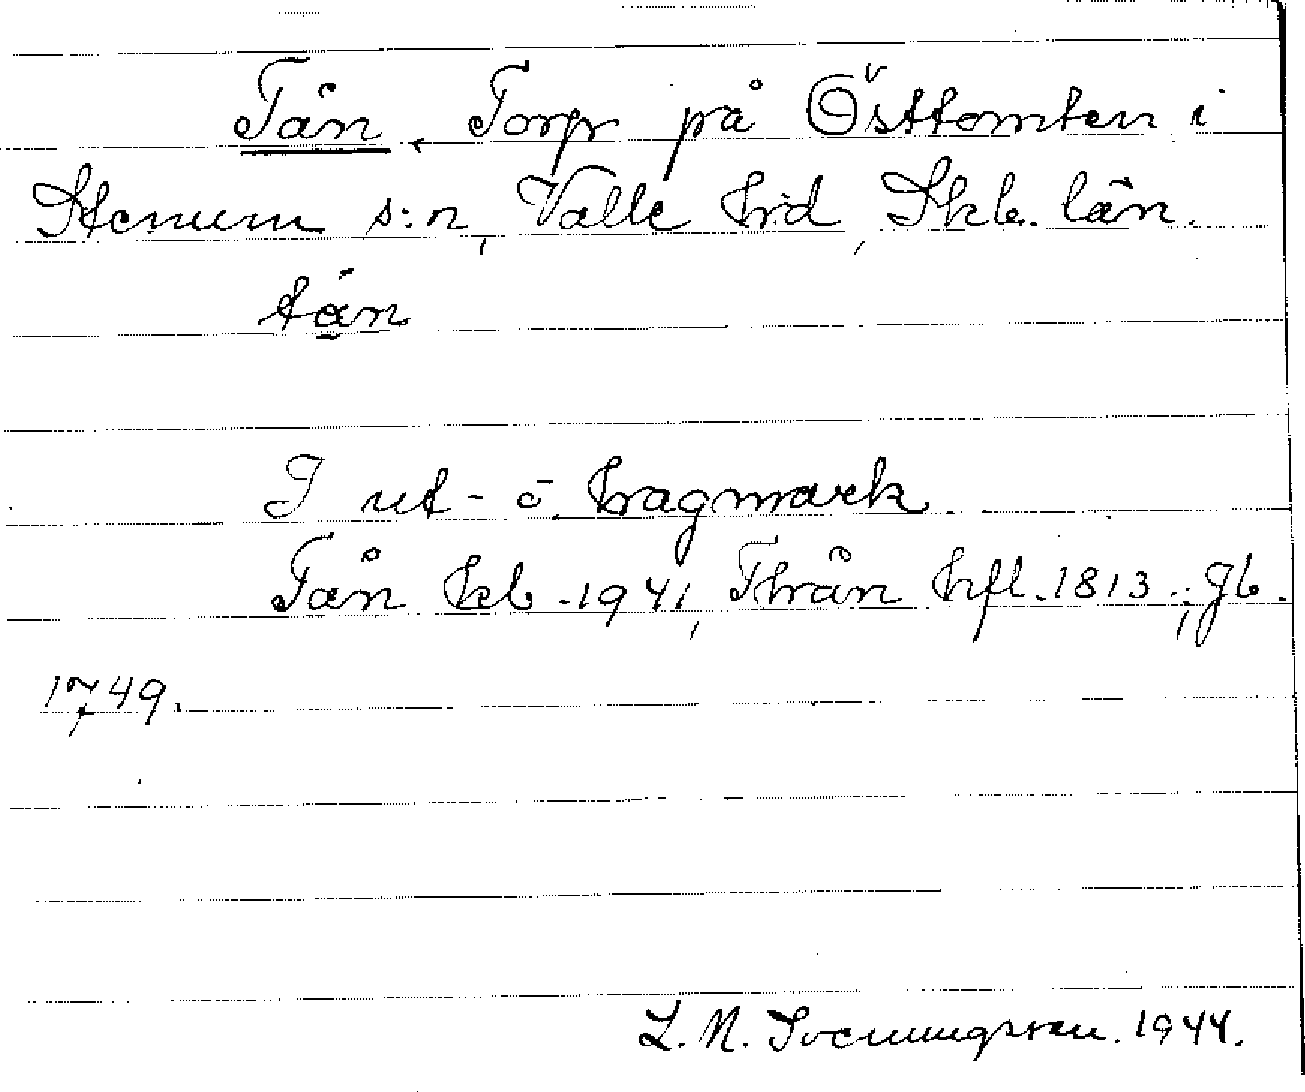 Tån. Torp på Östtomten i
Stenum s:n, Valle hrd, Skb. län.
tån
I ut- o. hagmark.
Tån kb. 1941, Thrån hfl. 1813; Jb.
1749.
L. N. Svenungsson. 1944.